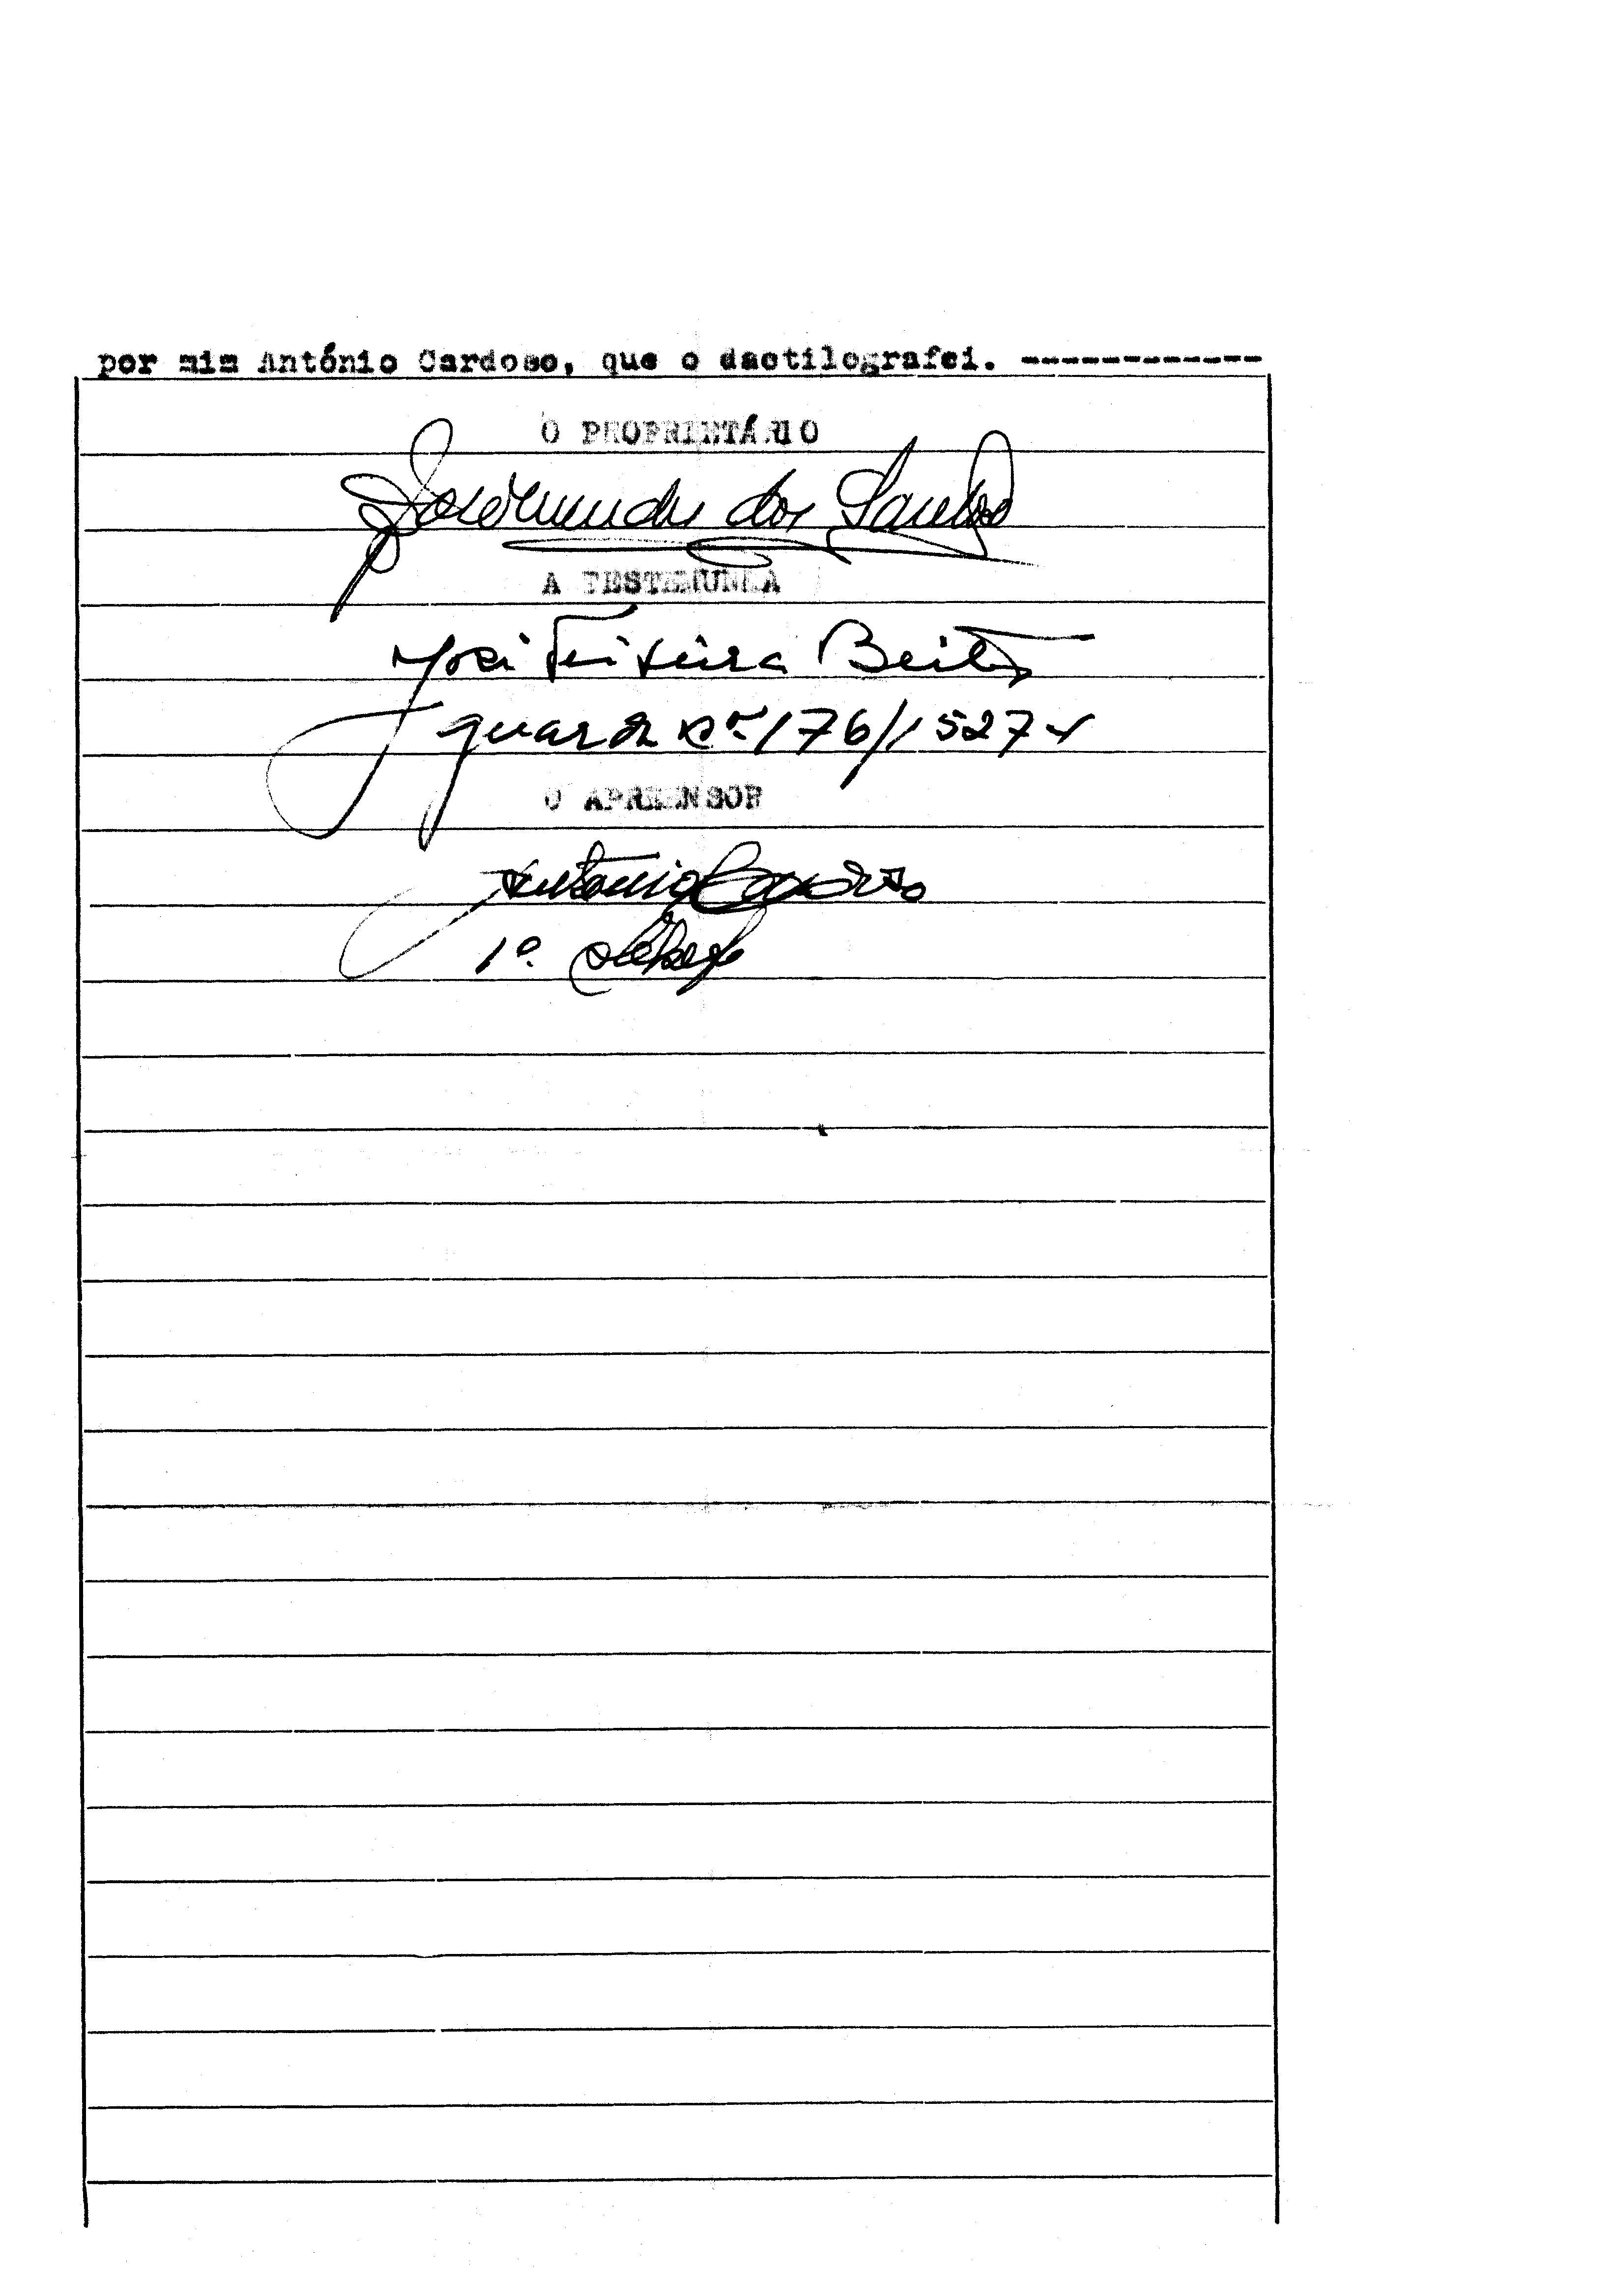 por mim António Cardoso, que o dactilografei. ------------
O PROPRIETÁRIO
dos Santos
A TESTEMUNHA
José Teixeira
guarda nº 176/15274
O APREENSOR
António Cardoso
1º.